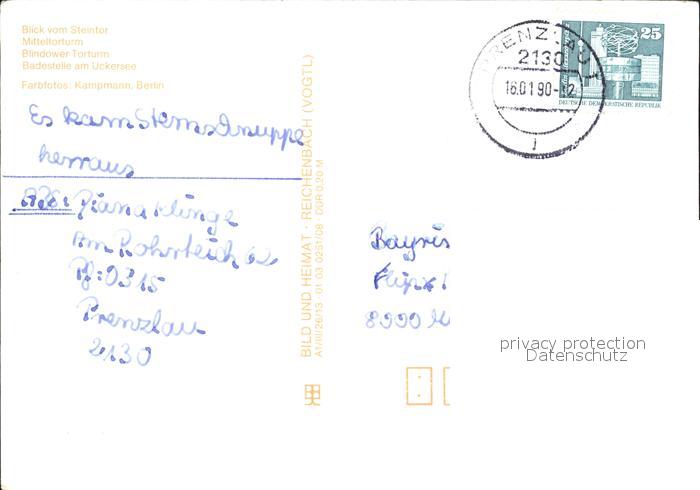 Blick vom Steintor
Mitteltorturm
Blindower Torturm
Badestelle am Uckersee
Farbfotos: Kampmann, Berlin
Es kam Sternschnuppe
herraus
Abs: Diana Klinge
Am Rohrteich 62
Pf: 0315
Prenzlau
2130
BILD UND HEIMAT · REICHENBACH (VOGTL)
A1/III/26/13 · 01 03 0251/08 · DDR 0,20 M
PRENZLAU 1
2130
16.01.90-12
25
DEUTSCHE DEMOKRATISCHE REPUBLIK
Bayris
8000 M
privacy protection
Datenschutz